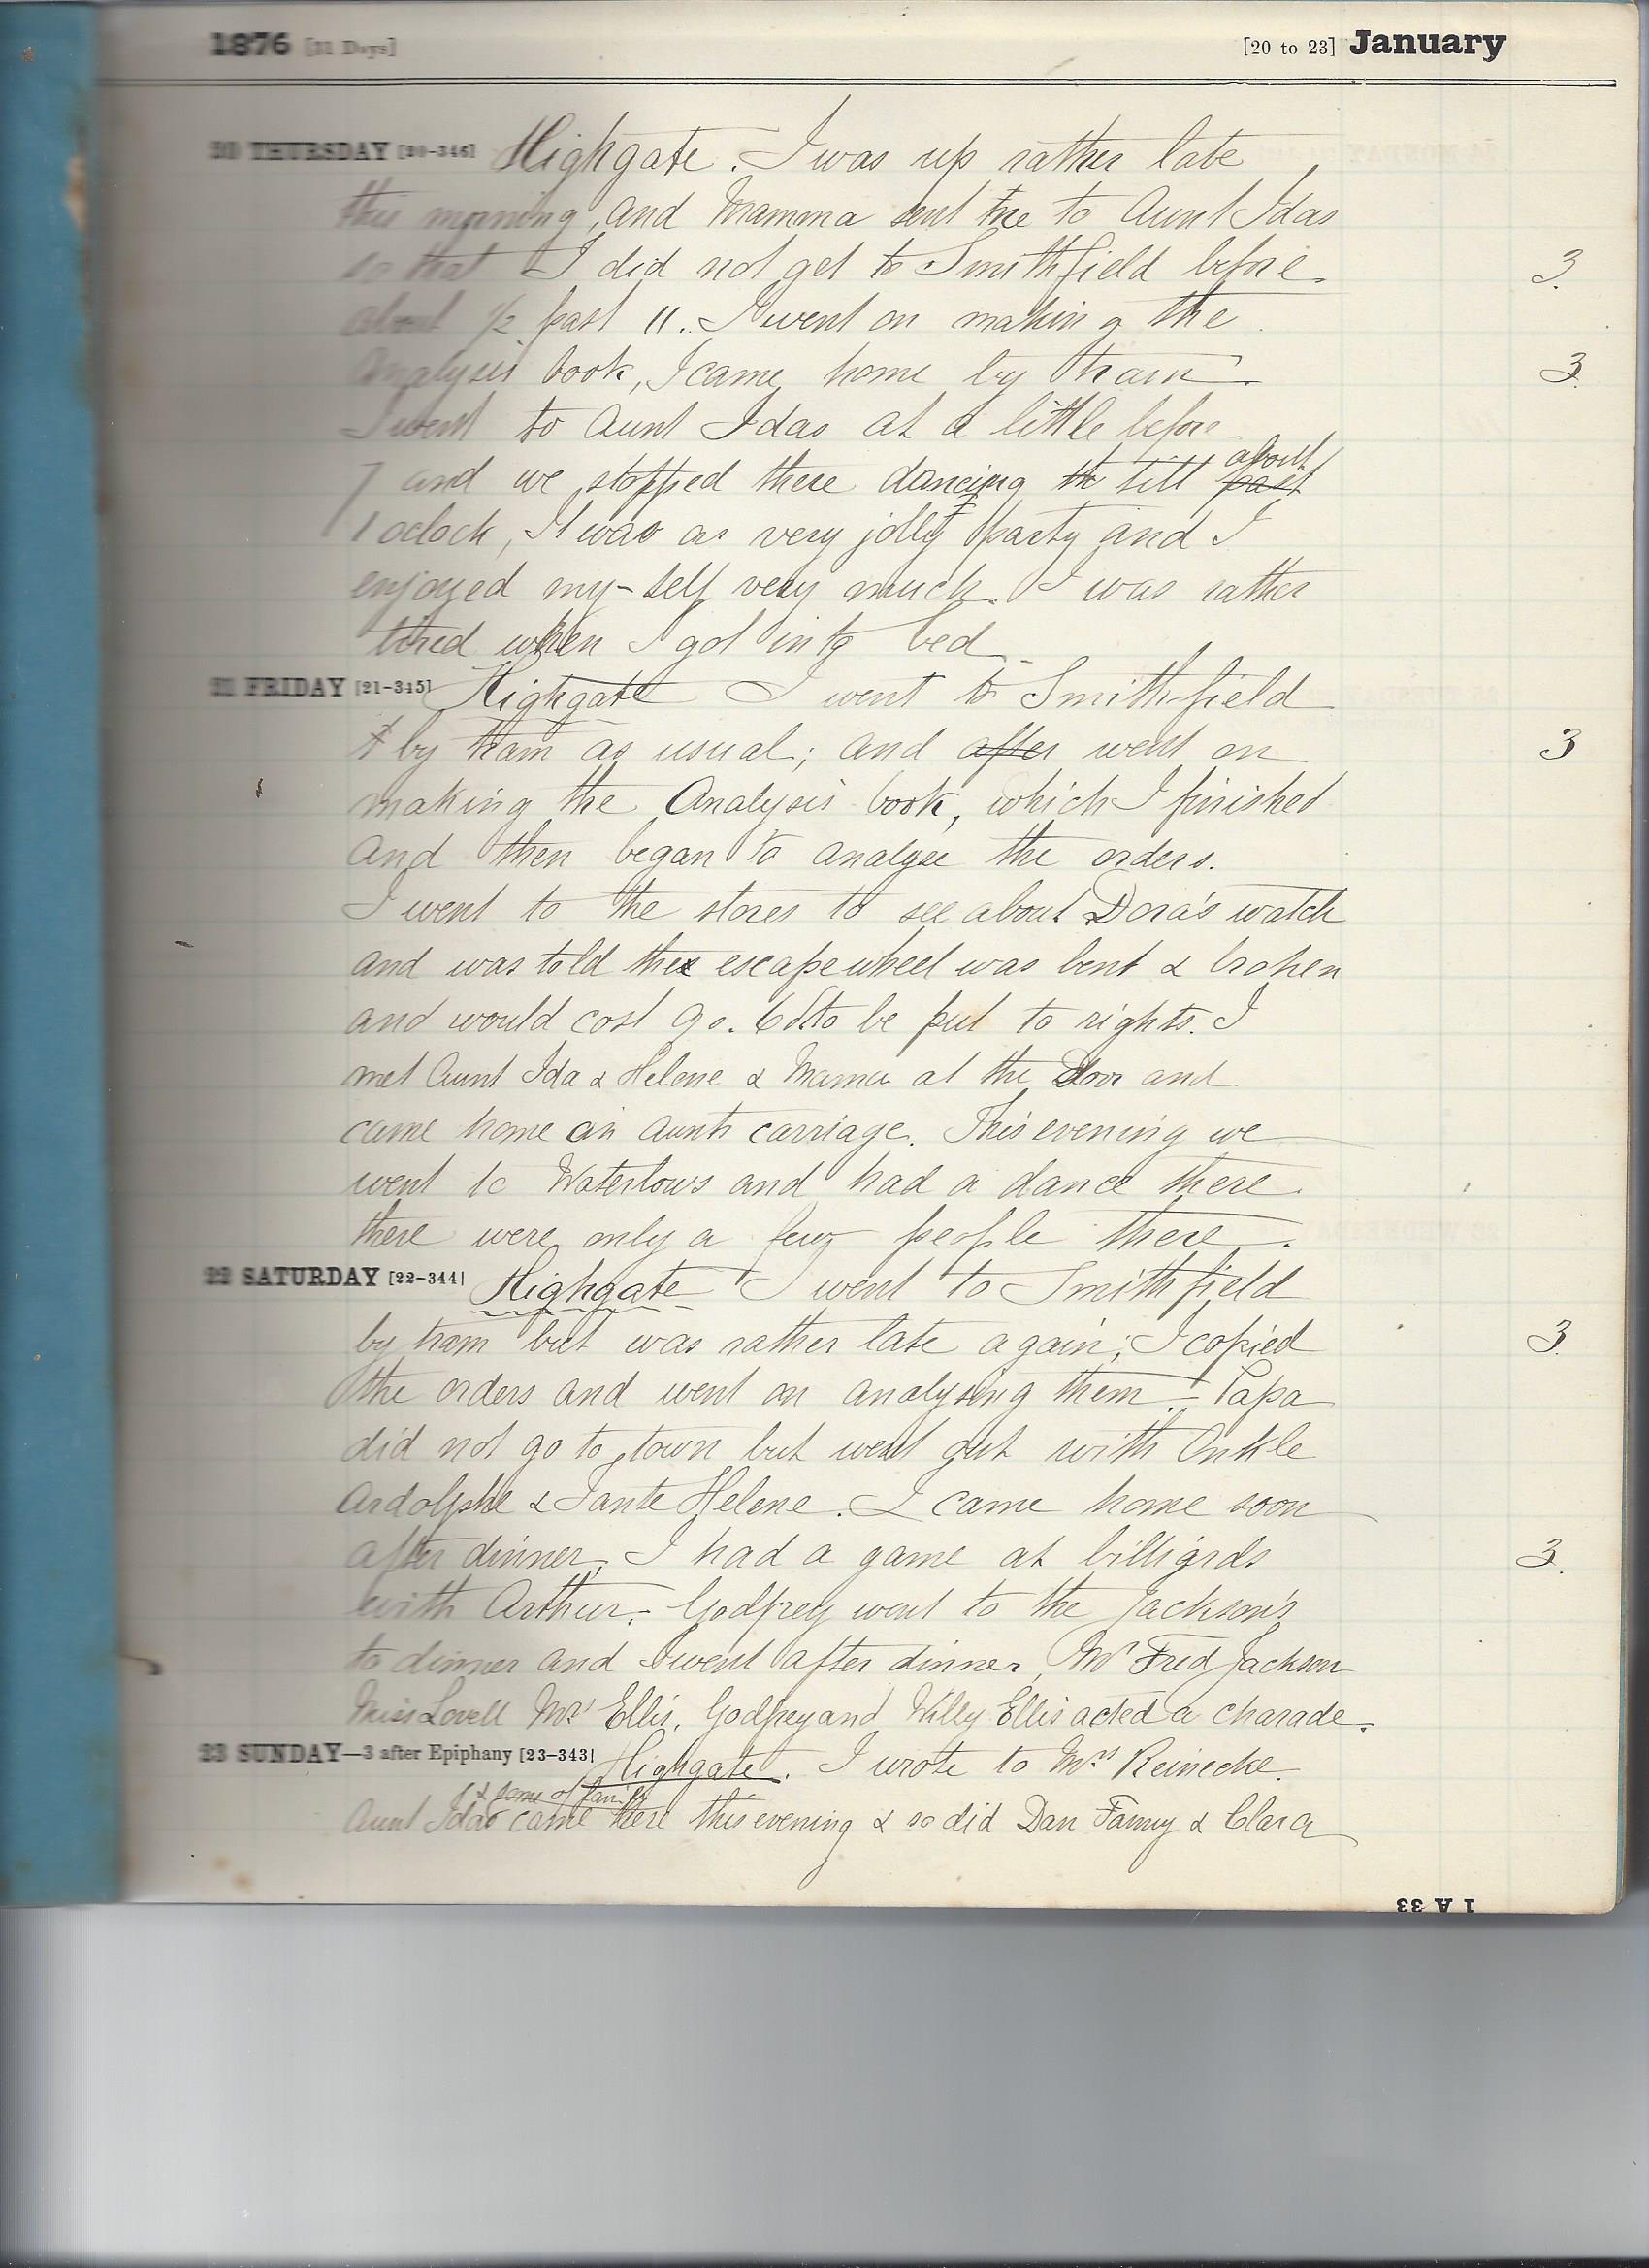 1876 [31 Days] [20 to 23] January
20 THURSDAY [20-346] Highgate. I was up rather late
this morning, and Mamma sent me to Aunt Idas
so that I did not get to Smithfield before 3.
about 1/2 past 11. I went on making the
Analysis book, I came home by tram. 3.
I went to Aunt Idas at a little before
7 and we stopped there dancing th till past about
1 oclock, It was a very jolly party and I
enjoyed my-self very much. I was rather
tired when I got into bed.
21 FRIDAY [21-345] Highgate I went to Smithfield
by tram as usual; and after went on 3
making the Analysis book, which I finished
and then began to analyse the orders.
I went to the stores to see about Dora's watch
and was told the escape wheel was bent & broken
and would cost 9s. 6d to be put to rights. I
met Aunt Ida & Helene & Mama at the Door and
came home in Aunts carriage. This evening we
went to Waterlows and had a dance there.
there were only a few people there.
22 SATURDAY [22-344] Highgate I went to Smithfield
by tram but was rather late again; I copied 3.
the orders and went on analysing them. Papa
did not go to town but went out with Onkle
Ardolphe & Tante Helene. I came home soon
after dinner, I had a game at billiards 3.
with Arthur. Godfrey went to the Jackson's
to dinner and I went after dinner, Mr Fred Jackson
Miss Lovell Mrs Ellis, Godfrey and Willy Ellis acted a charade.
23 SUNDAY—3 after Epiphany [23-343] Highgate. I wrote to Mrs Reinecke.
(& some of fam
Aunt Idas came here this evening & so did Dan Fanny & Clara
1 A 33